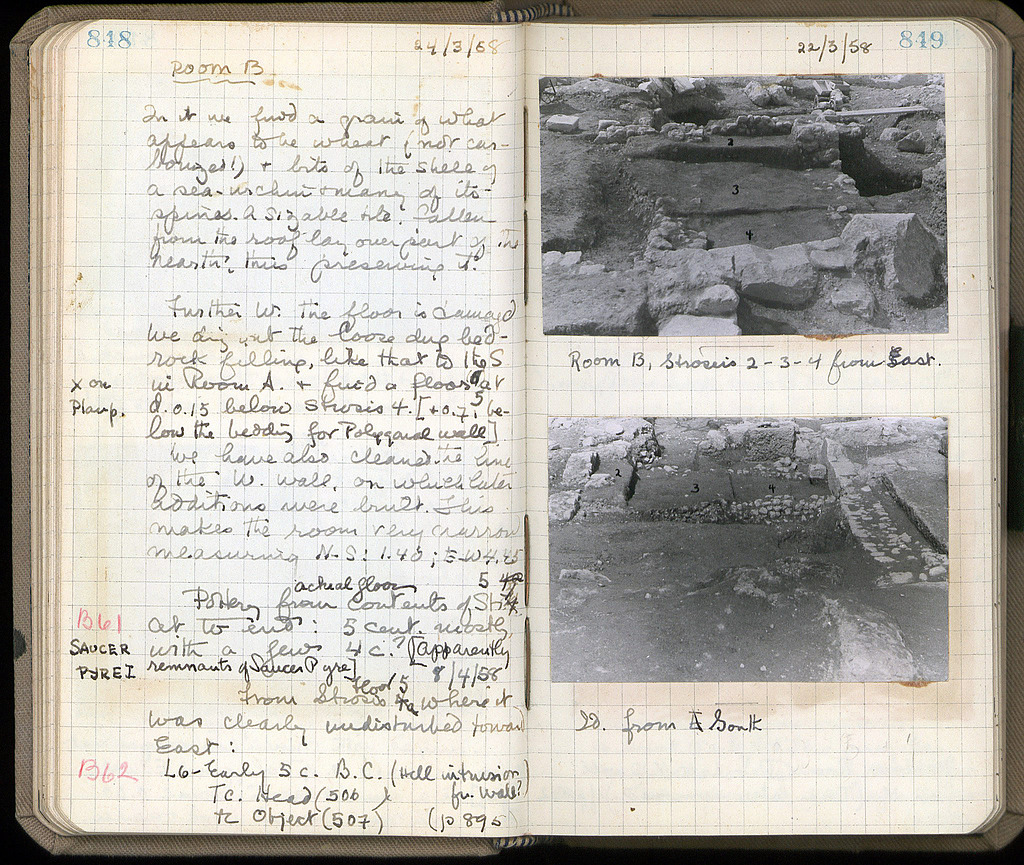 848
24/3/58
Room B
In it we find a grain of what
appears to be wheat (not car-
bonized!) + bits of the shell of
a sea-urchin + many of its
spines. A sizable tile fallen
from the roof lay over part of the
hearth, thus preserving it.
Further W. the floor is damaged
We dig out the loose dug bed-
rock filling, like that to the S
in Room A. + find a floor at
x on
Plan p.
d. 0.15 below Strosis 4. [+0.7, be-
low the bedding for Polygonal wall]
We have also cleaned the line
of the W. wall, on which later
additions were built. This
makes the room very narrow
measuring N-S: 1.45; E-W 4.45
actual floor 5
Pottery from contents of Str.
B61
at W end: 5 cent. mostly
SAUCER
with a few 4 c.? [apparently
PYRE I
remnants of Saucer Pyre] 8/4/58
floor 5
From Strosis where it
was clearly undisturbed toward
East:
B62
L6-Early 5 c. B.C. (Hell intrusion
fr. wall?)
Tc. Head (506)
tc Object (507) (p 895)
849
22/3/58
2
3
4
Room B, Stroseis 2-3-4 from East.
2
3
4
Id. from South